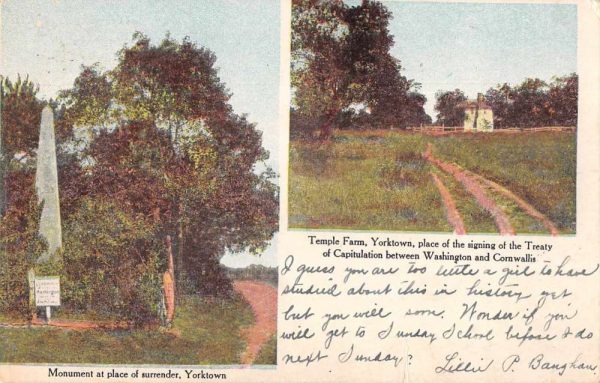 Temple Farm, Yorktown, place of the signing of the Treaty
of Capitulation between Washington and Cornwallis
I guess you are too little a girl to have
studied about this in history yet
but you will soon. Wonder if you
will get to Sunday School before I do
next Sunday?
Lillie P. Baughan.
Monument at place of surrender, Yorktown